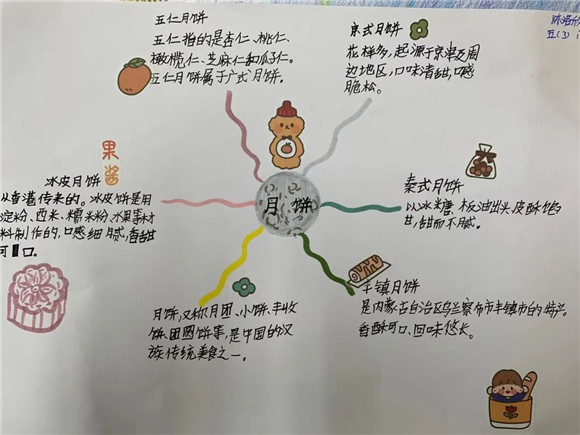 五仁月饼
五仁指的是杏仁、桃仁、
橄榄仁、芝麻仁和瓜子仁。
五仁月饼属于广式月饼。
京式月饼
花样多，起源于京津及周
边地区，口味清甜，口感
脆松。
果
酱
冰皮月饼
从香港传来的。冰皮饼是用
淀粉、西米、糯米粉、水果等材
料制作的，口感细腻，香甜
可口。
月饼
秦式月饼
以冰糖、板油出头，皮酥馅
甘，甜而不腻。
丰镇月饼
是内蒙古自治区乌兰察布市丰镇市的特产。
香酥可口、回味悠长。
月饼，又称月团、小饼、丰收
饼、团圆饼等，是中国的汉
族传统美食之一。
五(3)